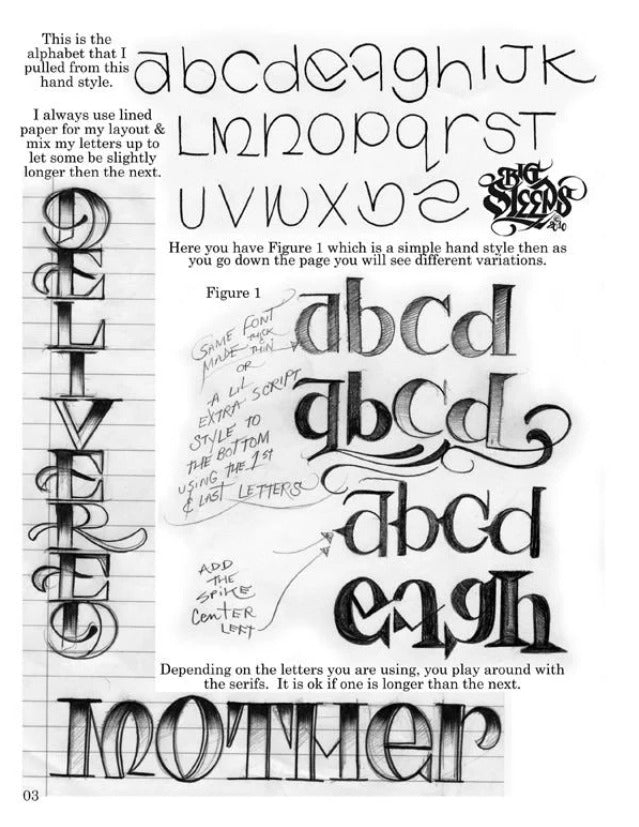 This is the
alphabet that I
pulled from this
hand style.
I always use lined
paper for my layout &
mix my letters up to
let some be slightly
longer then the next.
abcdeaghIJK
LMNOPqrST
UVWXYZ
BIG
SLEEPS
Here you have Figure 1 which is a simple hand style then as
you go down the page you will see different variations.
DELIVERED
Figure 1
SAME FONT
MADE THICK
THIN
OR
A LIL
EXTRA SCRIPT
STYLE TO
THE BOTTOM
USING THE 1ST
& LAST LETTERS
abcd
abcd
abcd
ADD
THE
SPIKE
CENTER
LEFT
eagh
Depending on the letters you are using, you play around with
the serifs. It is ok if one is longer than the next.
MOTHer
03